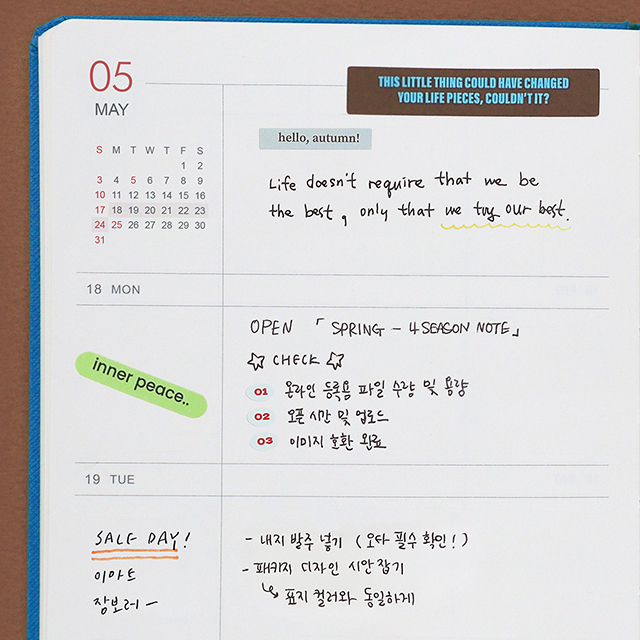 05
MAY
THIS LITTLE THING COULD HAVE CHANGED
YOUR LIFE PIECES, COULDN'T IT?
hello, autumn!
S M T W T F S
1 2
3 4 5 6 7 8 9
10 11 12 13 14 15 16
17 18 19 20 21 22 23
24 25 26 27 28 29 30
31
Life doesn't require that we be
the best, only that we try our best.
18 MON
OPEN 「SPRING - 4 SEASON NOTE」
☆ CHECK ☆
inner peace..
01 온라인 등록용 파일 수량 및 용량
02 오픈 시간 및 업로드
03 이미지 호환 완료
19 TUE
SALE DAY!
이마트
장보러 ~
- 내지 발주 넣기 (오타 필수 확인!)
- 패키지 디자인 시안 잡기
↳ 표지 컬러와 동일하게